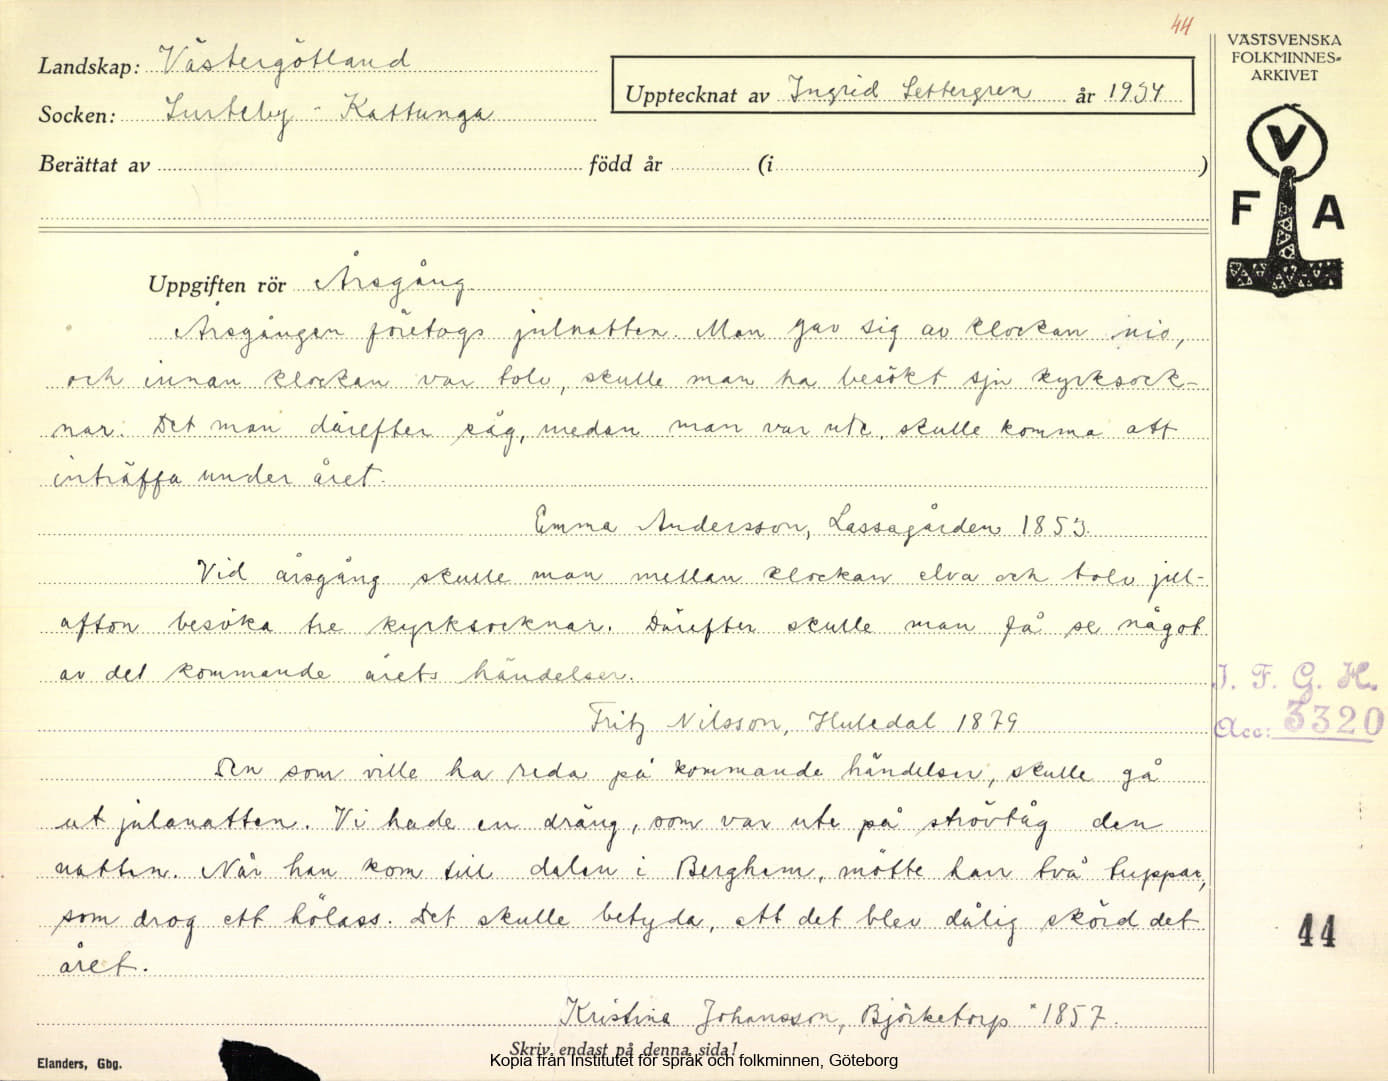 44
VÄSTSVENSKA
FOLKMINNES-
ARKIVET
V
F A
Landskap: Västergötland
Socken: Surteby - Kattunga
Upptecknat av Ingrid Settergren år 1934
Berättat av född år (i )
Uppgiften rör Årsgång
Årsgången företogs julnatten. Man gav sig av klockan nio,
och innan klockan var tolv, skulle man ha besökt sju kyrksock-
nar. Det man därefter såg, medan man var ute, skulle komma att
inträffa under året.
Emma Andersson, Lassagården 1853.
Vid årsgång skulle man mellan klockan elva och tolv jul-
afton besöka tre kyrksocknar. Därefter skulle man få se något
av det kommande årets händelser.
Fritz Nilsson, Huledal 1879
Den som ville ha reda på kommande händelser, skulle gå
ut julanatten. Vi hade en dräng, som var ute på strövtåg den
natten. När han kom till dalen i Berghem, mötte han två tuppar,
som drog ett hölass. Det skulle betyda, att det blev dålig skörd det
året.
Kristina Johansson, Björketorp * 1857.
I. F. G. H.
Acc: 3320
44
Skriv endast på denna sida!
Elanders, Gbg.
Kopia från Institutet för språk och folkminnen, Göteborg